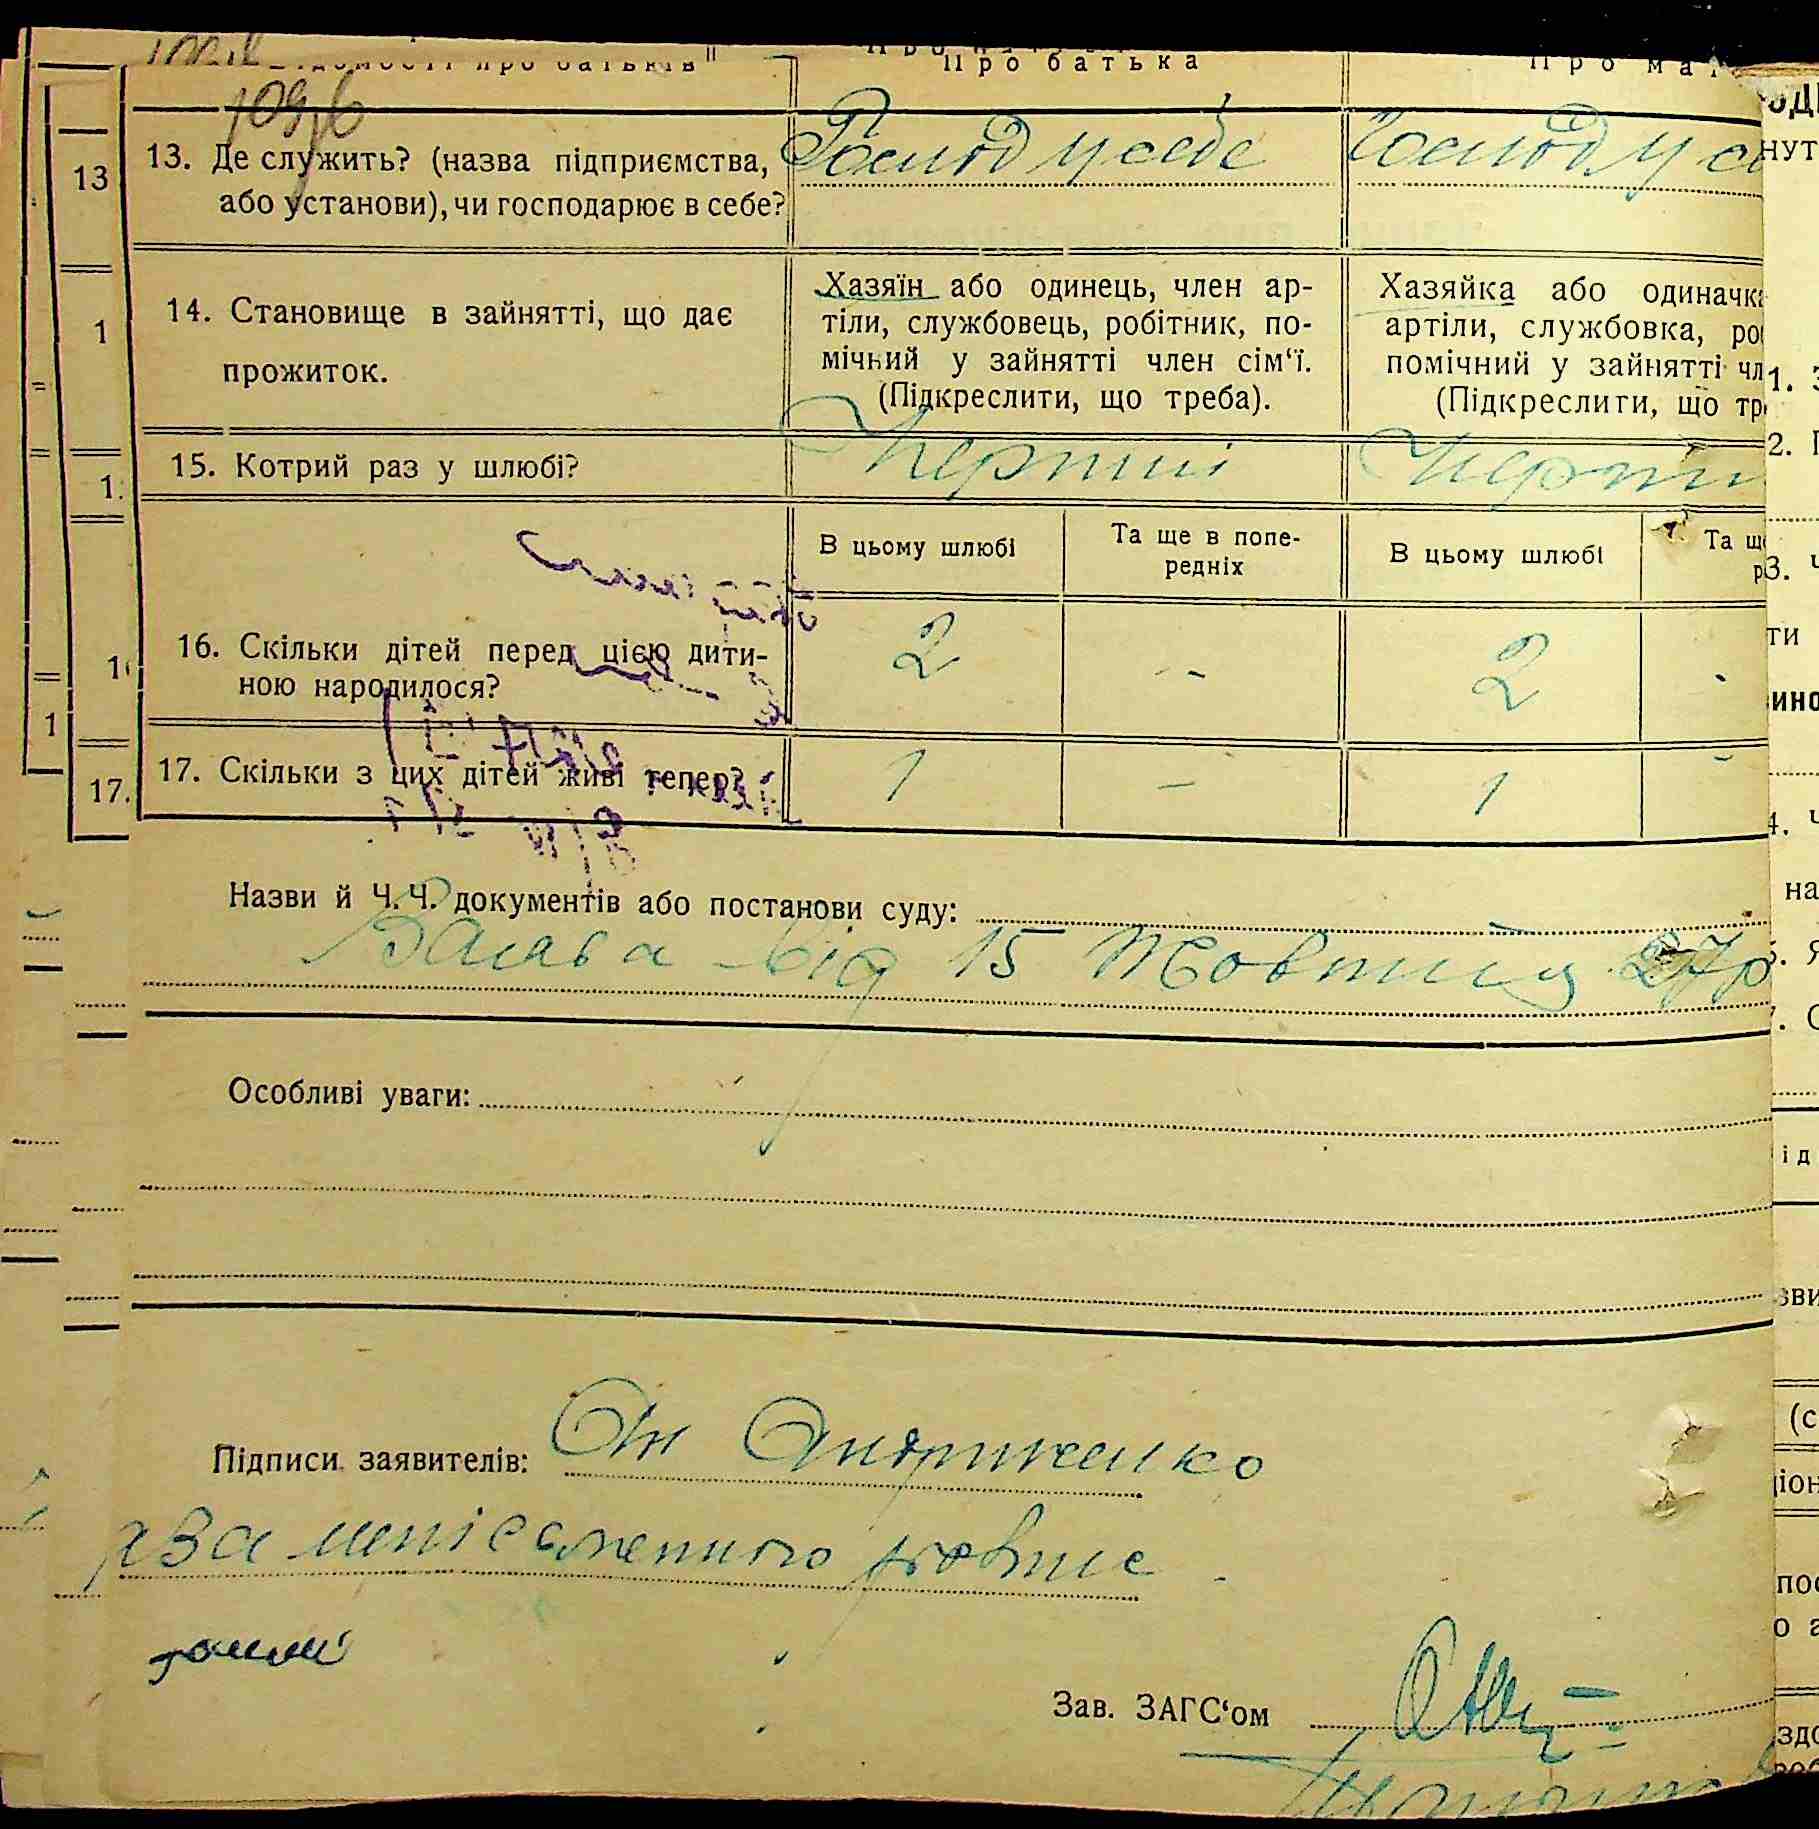 Про батька
Про ма
109
13. Де служить? (назва підприємства,
або установи), чи господарює в себе?
Господ у себе
Господ у се
14. Становище в зайнятті, що дає
прожиток.
Хазяїн або одинець, член ар-
тіли, службовець, робітник, по-
мічний у зайнятті член сім‘ї.
(Підкреслити, що треба).
Хазяйка або одиначка
артіли, службовка, ро
помічний у зайнятті чл
(Підкреслити, що тр
15. Котрий раз у шлюбі?
Перший
Перши
В цьому шлюбі
Та ще в попе-
редніх
В цьому шлюбі
Та щ
р
16. Скільки дітей перед цією дити-
ною народилося?
2 -- 2 -
17. Скільки з цих дітей живі тепер?
1 - 1 -
Назви й Ч.Ч. документів або постанови суду:
Заява від 15 Жовтня 27р
Особливі уваги:
Підписи заявителів:
Ан Андрющенко
за неписьменного
Зав. ЗАГС‘ом
13
1
1
17.
1
1.
2.
3.